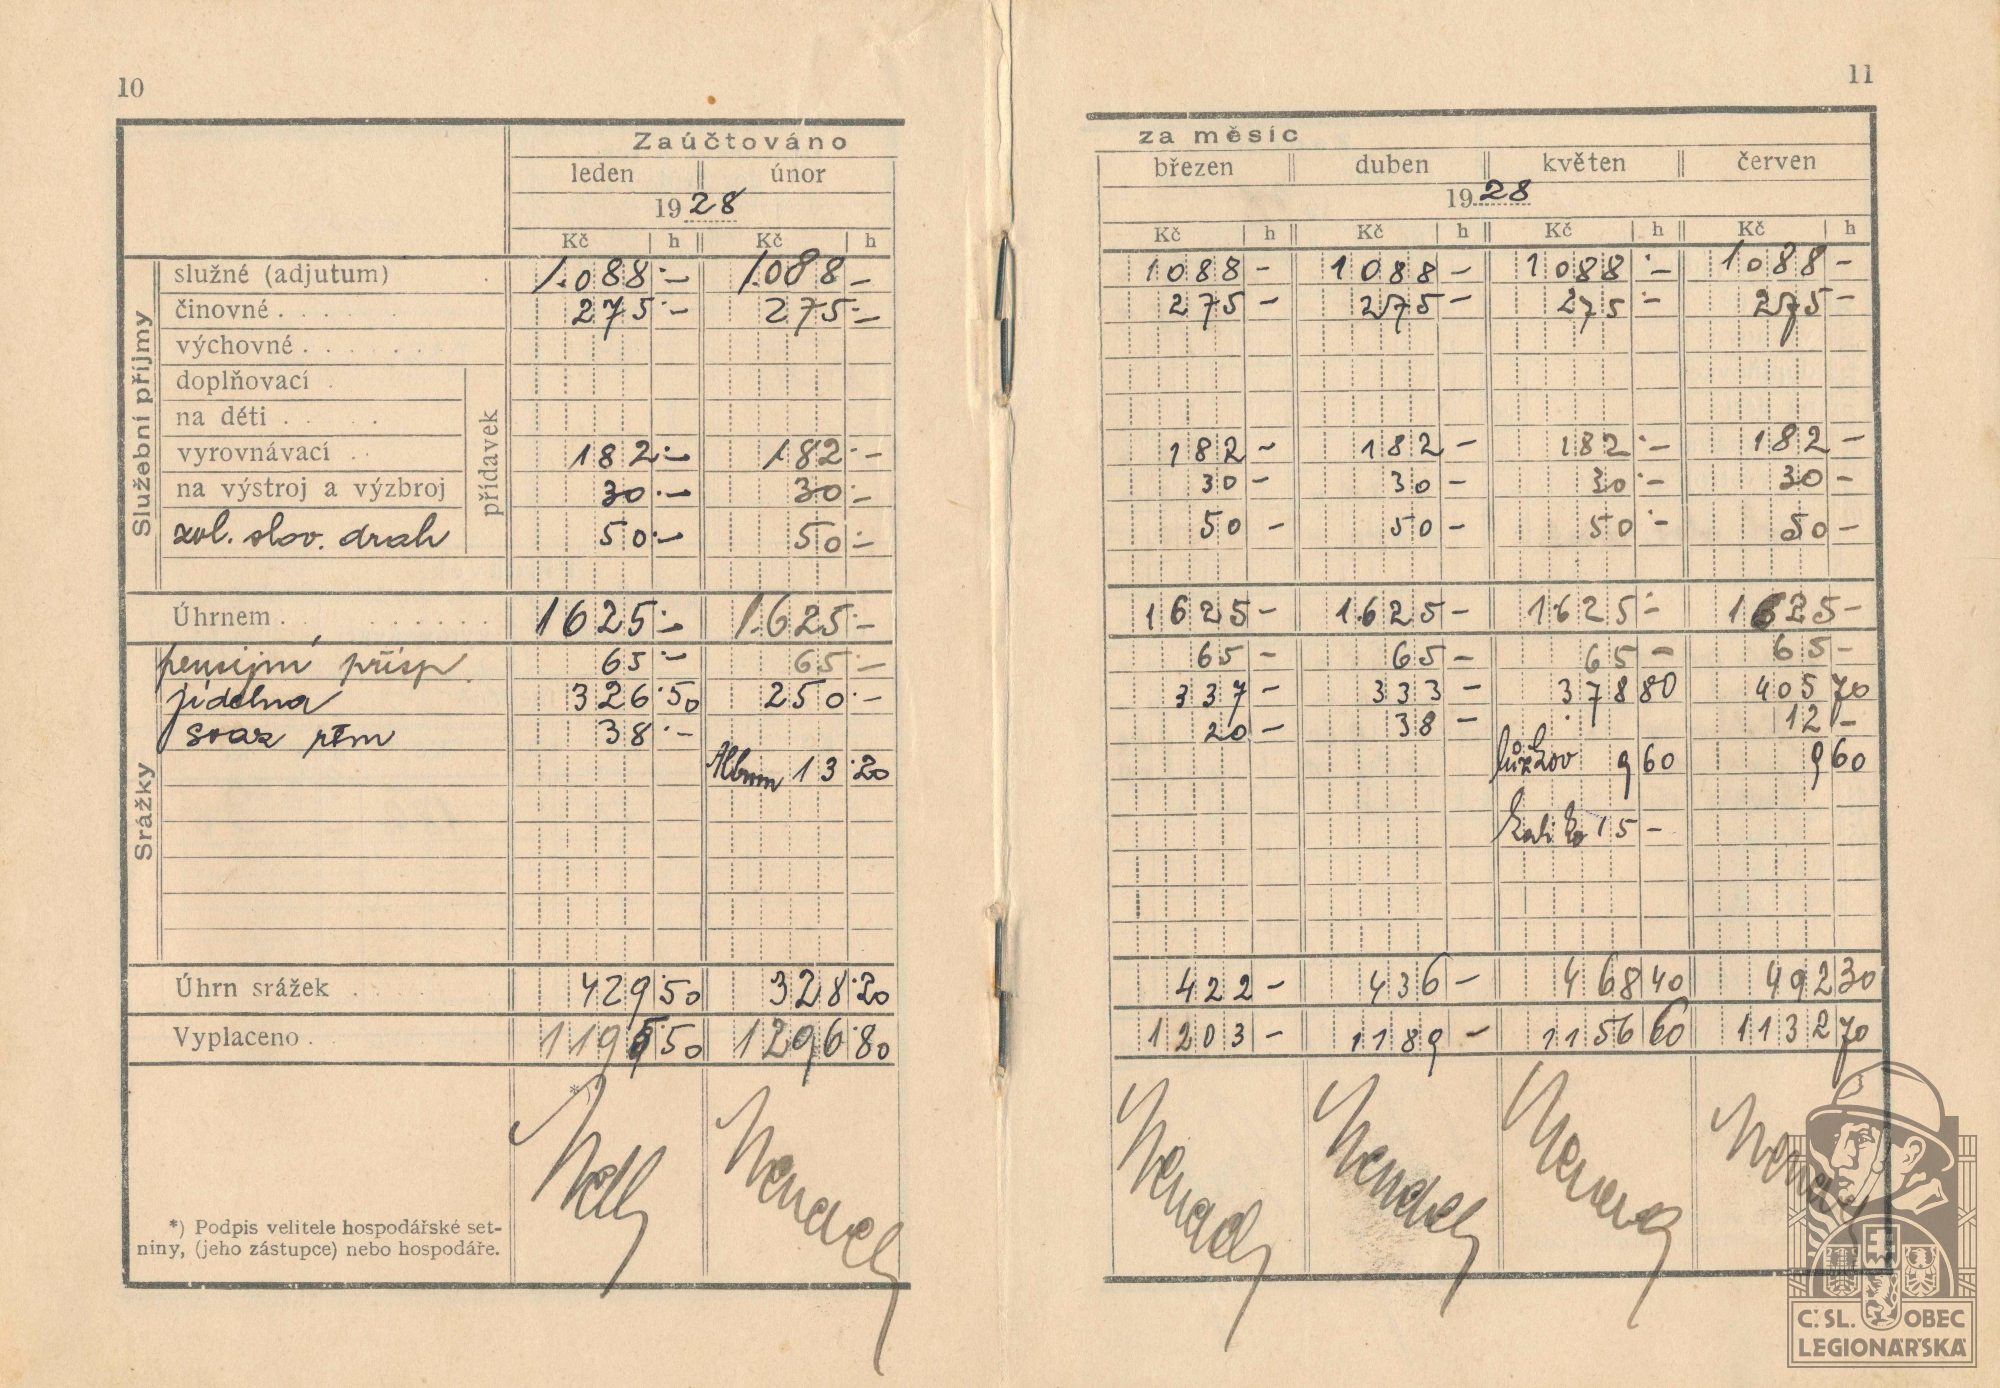 10
Zaúčtováno
leden únor
1928
Kč h Kč h
Služební příjmy
přídavek
služné (adjutum) 1.088·– 1.088–
činovné 275·– 275·–
výchovné
doplňovací
na děti
vyrovnávací 182·– 182·–
na výstroj a výzbroj 30·– 30·–
zvl. slov. drah 50·– 50·–
Úhrnem 1625·– 1.625·–
Srážky
pensijní přísp. 65·– 65·–
jídelna 326·50 250·–
svaz rtm 38·–
Album 13·20
Úhrn srážek 429·50 328·20
Vyplaceno 1195·50 1296·80
*)
*) Podpis velitele hospodářské set-
niny, (jeho zástupce) nebo hospodáře.
11
za měsíc
březen duben květen červen
1928
Kč h Kč h Kč h Kč h
1088– 1088– 1088·– 1088–
275– 275– 275·– 275–
182– 182– 182·– 182–
30– 30– 30·– 30–
50– 50– 50·– 50–
1625– 1.625– 1625·– 1625–
65– 65– 65– 65–
337– 333– 378 80 405 70
20– 38– 12–
9 60 9 60
15–
422– 436– 468 40 492 30
1203– 1189– 1156 60 1132 70
Č. SL. OBEC
LEGIONÁŘSKÁ